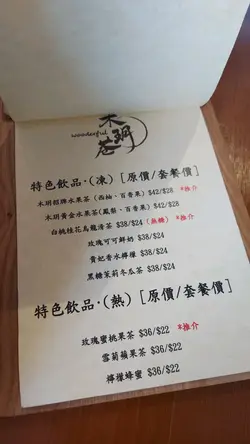 木玥苍
wonderful
特色飲品·(凍) [原價/套餐價]
木玥招牌水果茶 (西柚、百香果) $42/$28 *推介
木玥黃金水果茶(鳳梨、百香果) $42/$28
白桃桂花烏龍清茶 $38/$24 (無糖) *推介
玫瑰可可鮮奶 $38/$24
貴妃香水檸檬 $38/$24
黑糖茉莉冬瓜茶 $38/$24
特色飲品·(熱) [原價/套餐價]
玫瑰蜜桃果茶 $36/$22 *推介
雪菊蘋果茶 $36/$22
檸檬蜂蜜 $36/$22